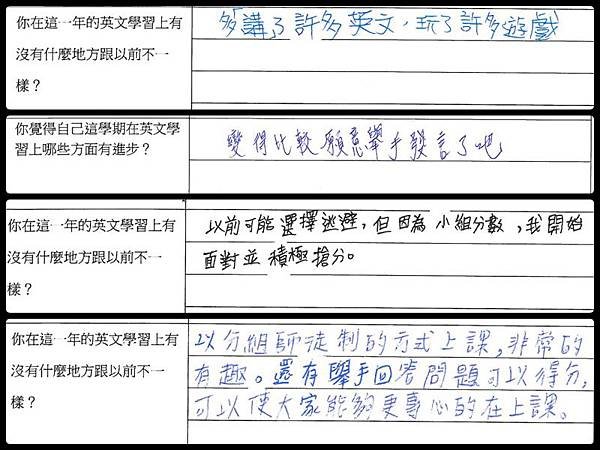 你在這一年的英文學習上有
沒有什麼地方跟以前不一
樣？
多講了許多英文，玩了許多遊戲
你覺得自己這學期在英文學
習上哪些方面有進步？
變得比較願意舉手發言了吧
你在這一年的英文學習上有
沒有什麼地方跟以前不一
樣？
以前可能選擇逃避，但因為小組分數，我開始
面對並積極搶分。
你在這一年的英文學習上有
沒有什麼地方跟以前不一
樣？
以分組師徒制的方式上課，非常的
有趣。還有舉手回答問題可以得分，
可以使大家能夠更專心的在上課。